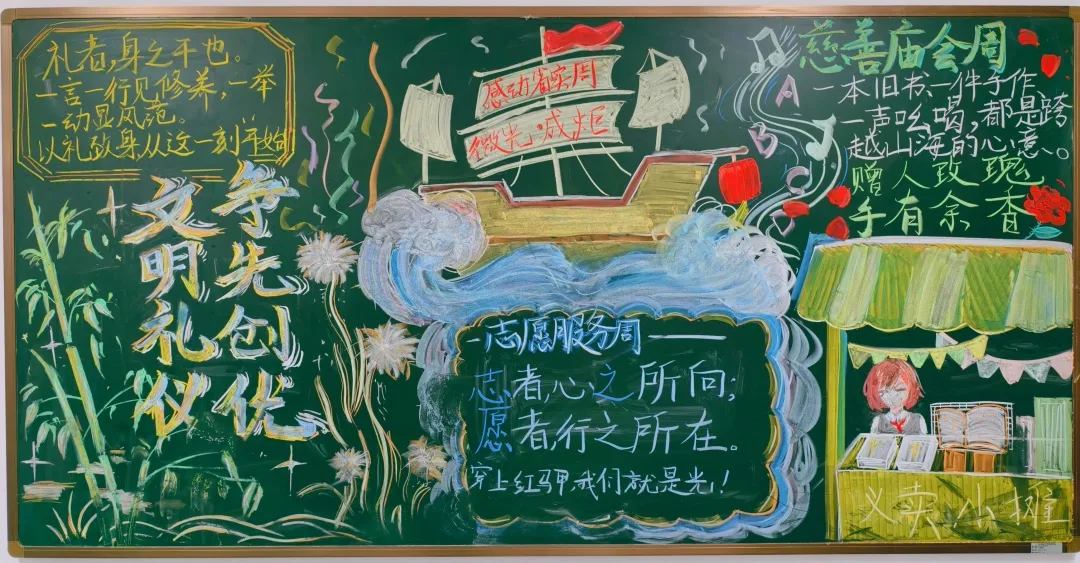 礼者,身之干也。
一言一行见修养,一举
一动显风范。
以礼致身从这一刻开始
争先创优
文明礼仪
感动省实周
微光成炬
一志愿服务周——
志者,心之所向;
愿者,行之所在。
穿上红马甲,我们就是光!
A
B
C
慈善庙会周
一本旧书、一件手作
一声吆喝,都是跨
越山海的心意。
赠人玫瑰
手有余香
义卖小摊